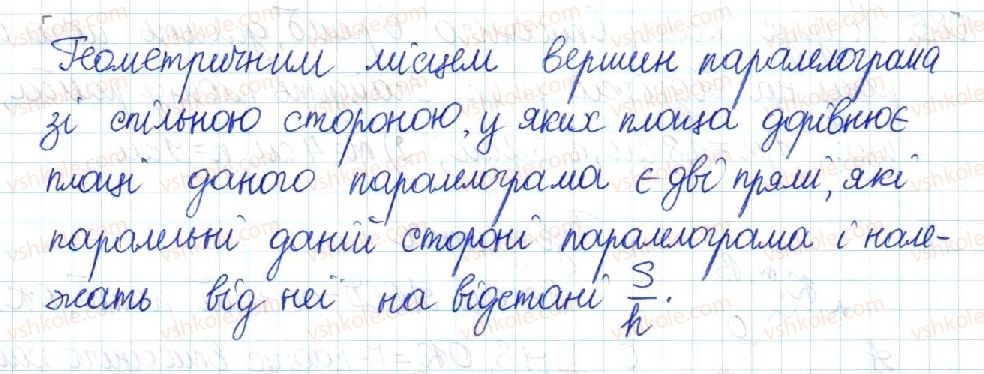 Геометричним місцем вершин паралелограма
зі спільною стороною, у яких площа дорівнює
площі даного паралелограма є дві прямі, які
паралельні даній стороні паралелограма і нале-
жать від неї на відстані S/h.